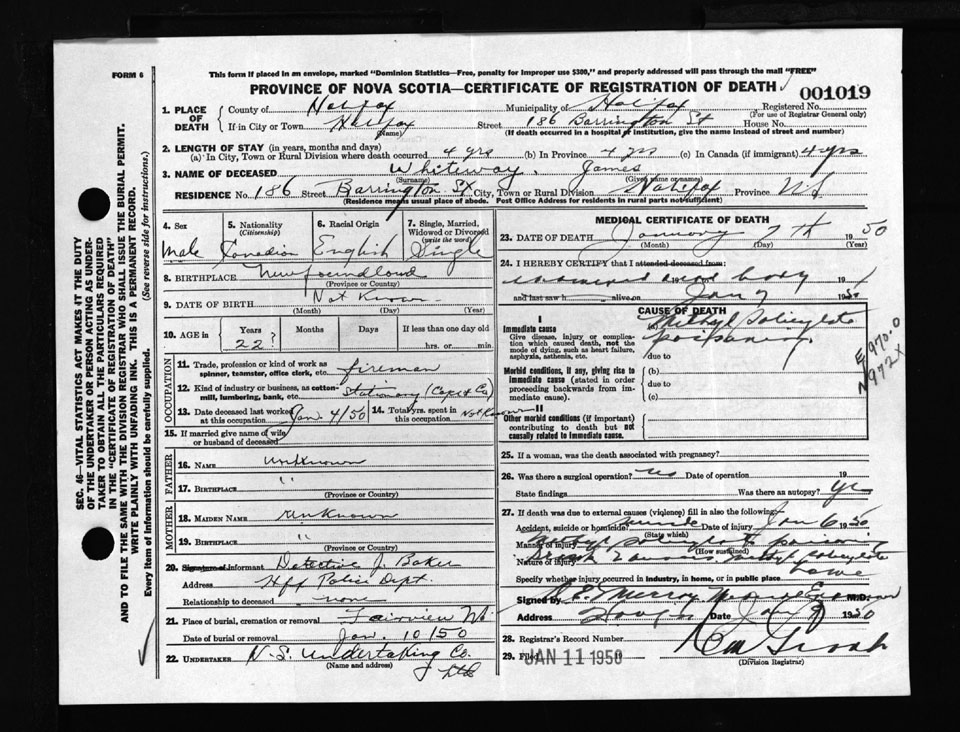 FORM 6
This form if placed in an envelope, marked "Dominion Statistics—Free, penalty for improper use $300," and properly addressed will pass through the mail "FREE"
PROVINCE OF NOVA SCOTIA—CERTIFICATE OF REGISTRATION OF DEATH
001019
1. PLACE OF DEATH
County of Halifax Municipality of Halifax Registered No.
(For use of Registrar General only)
If in City or Town Halifax Street 186 Barrington St House No.
(Name) (If death occurred in a hospital or institution, give the name instead of street and number)
2. LENGTH OF STAY (in years, months and days)
(a) In City, Town or Rural Division where death occurred 4 yrs (b) In Province 4 yrs (c) In Canada (if immigrant) 4 yrs
3. NAME OF DECEASED Whiteway, James
(Surname) (Given name or names)
RESIDENCE No. 186 Street Barrington St City, Town or Rural Division Halifax Province N.S.
(Residence means usual place of abode. Post Office Address for residents in rural parts not sufficient)
4. Sex Male
5. Nationality (Citizenship) Canadian
6. Racial Origin English
7. Single, Married, Widowed or Divorced (write the word) Single
8. BIRTHPLACE Newfoundland
(Province or Country)
9. DATE OF BIRTH Not Known
(Month) (Day) (Year)
10. AGE in Years Months Days If less than one day old
22? hrs. or min.
OCCUPATION
11. Trade, profession or kind of work as spinner, teamster, office clerk, etc. fireman
12. Kind of industry or business, as cotton-mill, lumbering, bank, etc. Stationary
13. Date deceased last worked at this occupation Jan 4/50
14. Total yrs. spent in this occupation Not Known
15. If married give name of wife or husband of deceased
FATHER
16. NAME unknown
17. BIRTHPLACE "
(Province or Country)
MOTHER
18. MAIDEN NAME unknown
19. BIRTHPLACE "
(Province or Country)
20. Signature of informant Detective J. Baker
Address Hfx Police Dept.
Relationship to deceased none
21. Place of burial, cremation or removal Fairview N.S.
Date of burial or removal Jan. 10/50
22. UNDERTAKER N.S. Undertaking Co. Ltd
(Name and address)
MEDICAL CERTIFICATE OF DEATH
23. DATE OF DEATH January 7th 1950
(Month) (Day) (Year)
24. I HEREBY CERTIFY that I attended deceased from:
examined dead body 19
and last saw h alive on Jan 7 1950
CAUSE OF DEATH
I
Immediate cause
Give disease, injury or complication which caused death, not the mode of dying, such as heart failure, asphyxia, asthenia, etc.
(a) Methyl Salicylate poisoning
due to
Morbid conditions, if any, giving rise to immediate cause (stated in order proceeding backwards from immediate cause).
(b)
due to
(c)
II
Other morbid conditions (if important) contributing to death but not causally related to immediate cause.
E970.0
N972X
25. If a woman, was the death associated with pregnancy?
26. Was there a surgical operation? no Date of operation 19
State findings Was there an autopsy? yes
27. If death due to external causes (violence) fill in also the following:—
Accident, suicide or homicide? Date of injury Jan 6 1950
(State which)
Manner of injury Methyl salicylate poisoning
(How sustained)
Nature of injury
Specify whether injury occurred in industry, in home, or in public place home
Signed by M.D.
Address Date Jan 1950
28. Registrar's Record Number
29. Filed JAN 11 1950 19
(Division Registrar)
SEC. 46—VITAL STATISTICS ACT MAKES IT THE DUTY
OF THE UNDERTAKER OR PERSON ACTING AS UNDER-
TAKER TO OBTAIN ALL THE PARTICULARS REQUIRED
IN THE "CERTIFICATE OF REGISTRATION OF DEATH"
AND TO FILE THE SAME WITH THE DIVISION REGISTRAR WHO SHALL ISSUE THE BURIAL PERMIT.
WRITE PLAINLY WITH UNFADING INK. THIS IS A PERMANENT RECORD.
Every item of information should be carefully supplied. (See reverse side for instructions.)